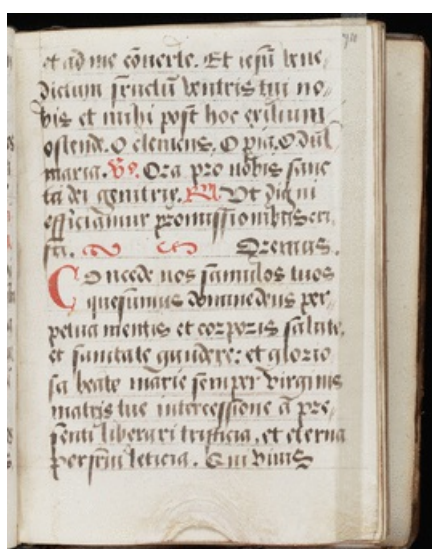 et ad me cõuerte. Et iesũ bene⸗
dictum fructũ ventris tui no⸗
bis et michi post hoc exilium
ostende. O clemens. O pia. O dul
maria. V. Ora pro nobis sanc
ta dei genitrix. R. Vt digni
efficiamur promissionibus cri⸗
sti. Oremus.
Concede nos famulos tuos
quesumus domine deus per⸗
petua mentis et corporis salute,
et sanitate gaudere: et glorio
sa beate marie semper virginis
matris tue intercessione a pre⸗
senti liberari tristicia, et eterna
leticia. Qui viuis